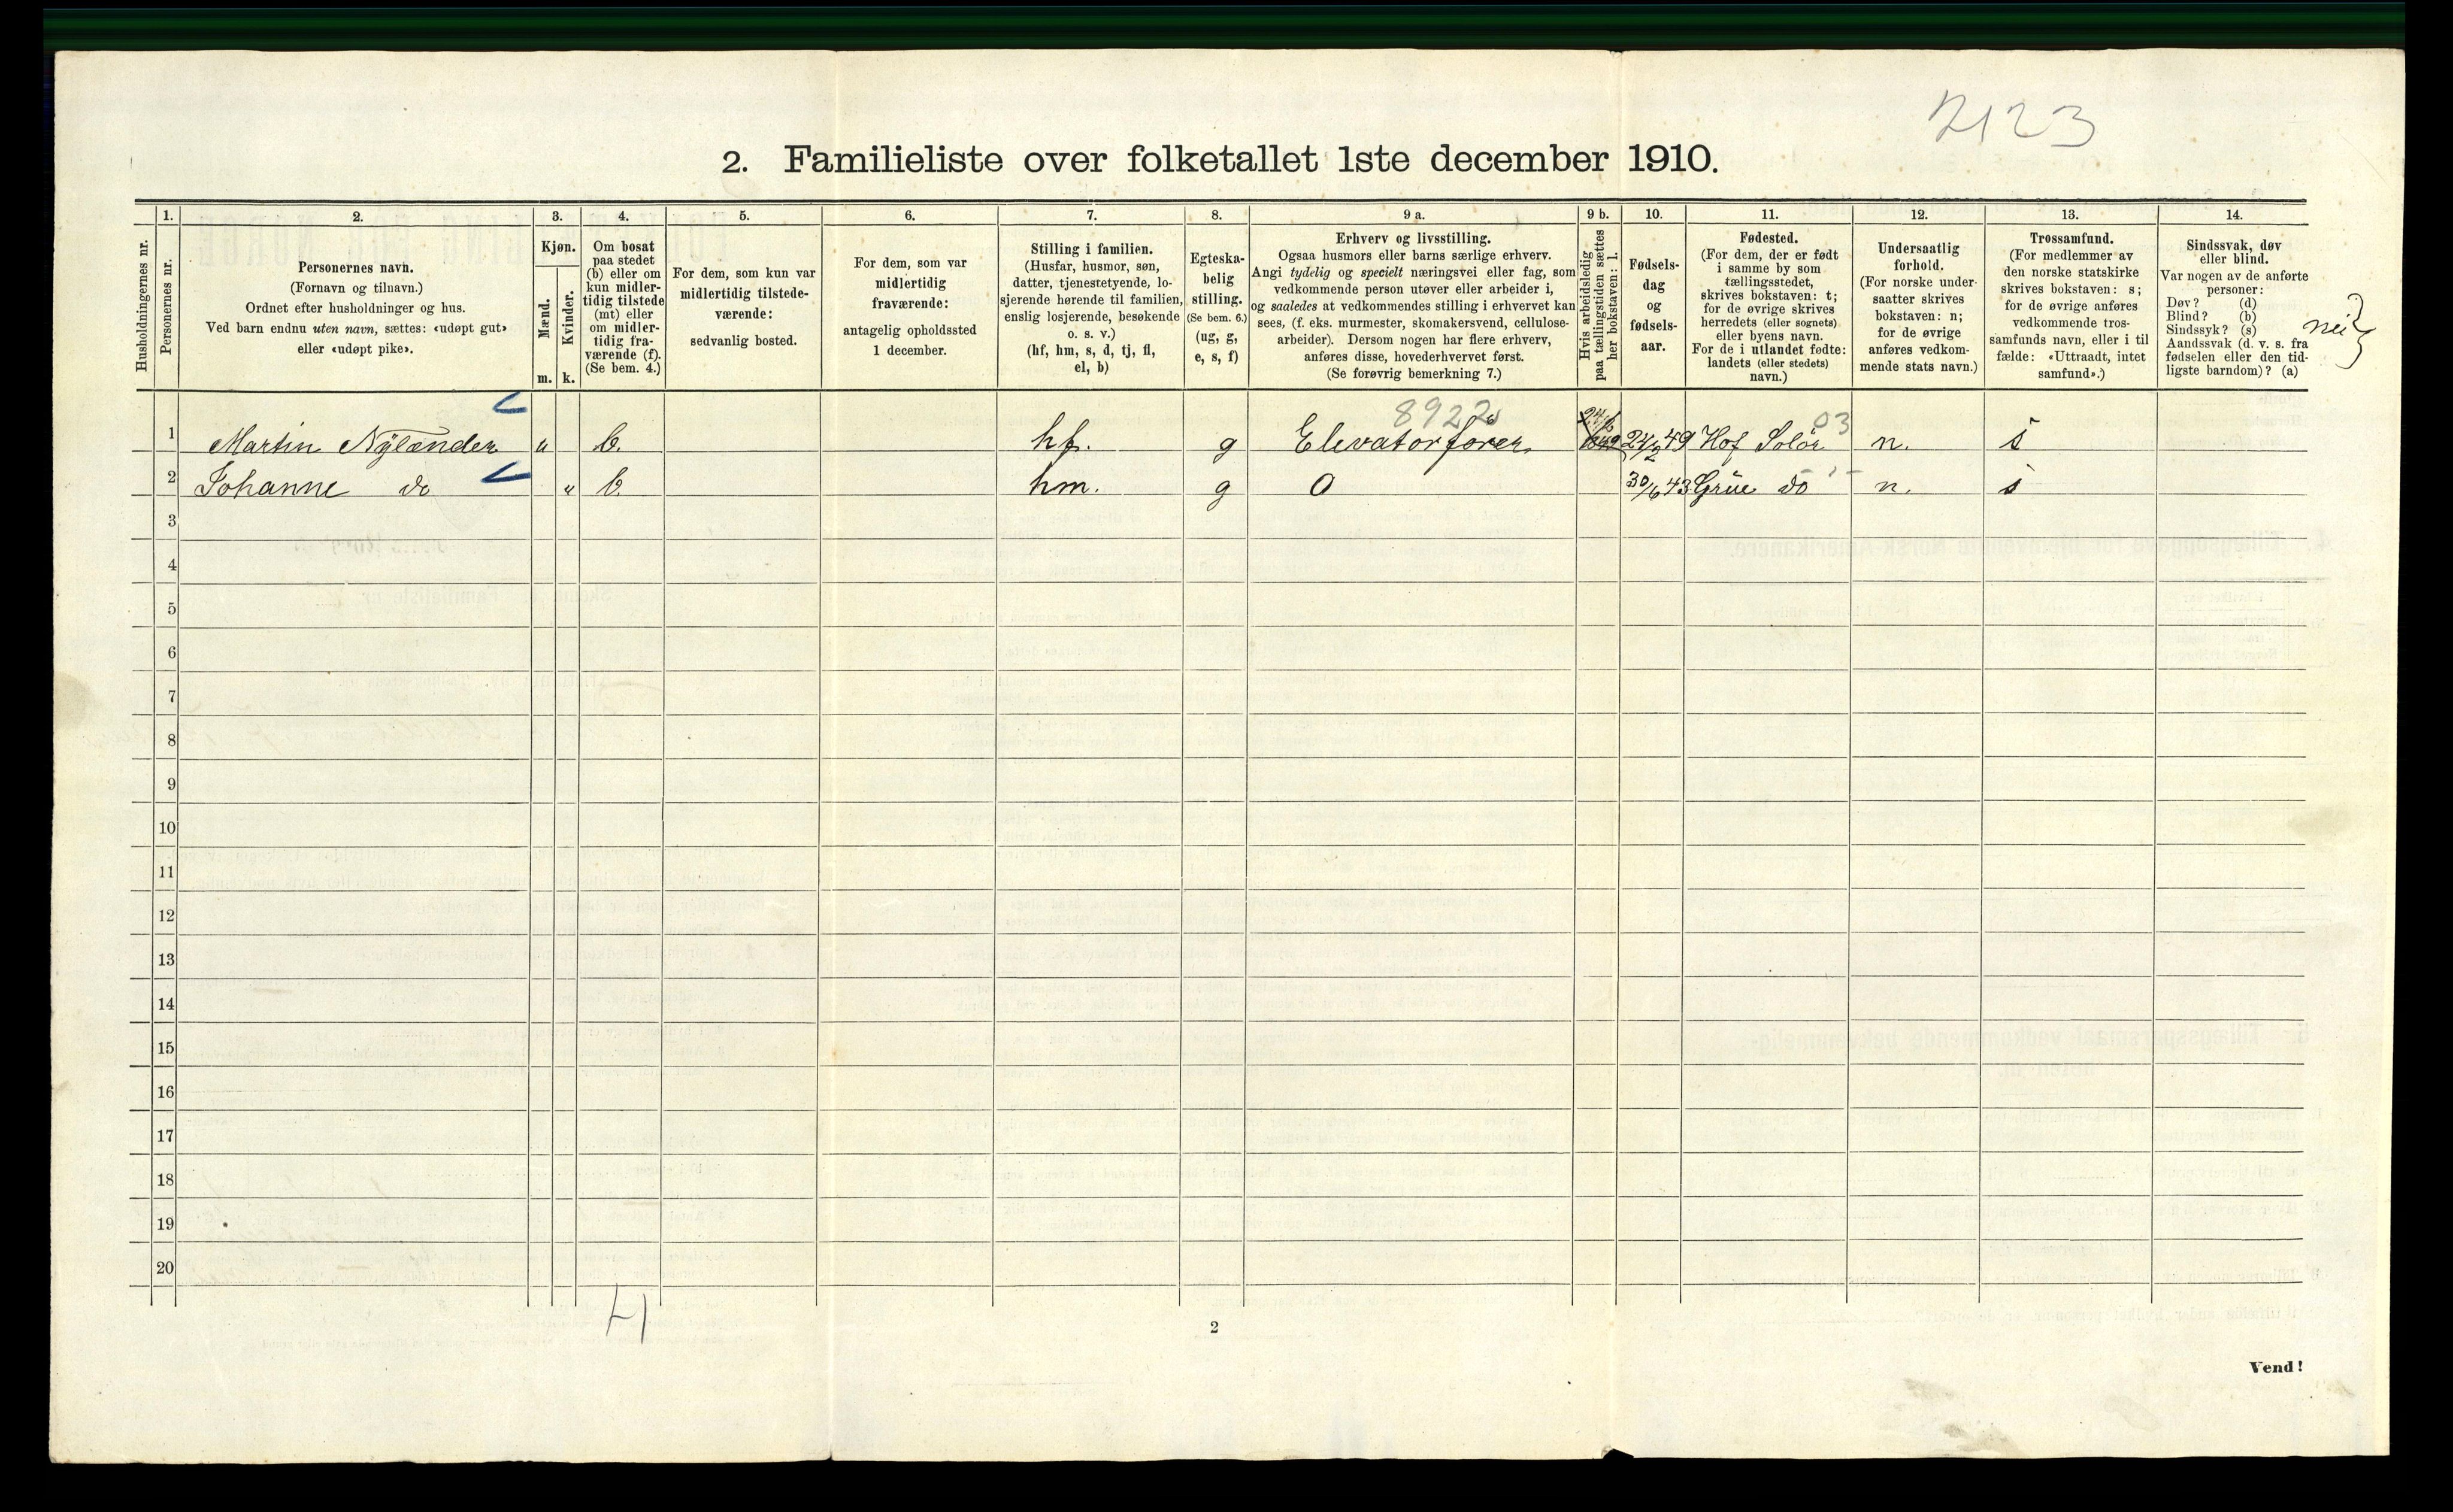 2123
2. Familieliste over folketallet 1ste december 1910.
Husholdningernes nr.
1. Personernes nr.
2. Personernes navn.
(Fornavn og tilnavn.)
Ordnet efter husholdninger og hus.
Ved barn endnu uten navn, sættes: «udøpt gut»
eller «udøpt pike».
3. Kjøn.
Mænd. Kvinder.
m. k.
4. Om bosat
paa stedet
(b) eller om
kun midler-
tidig tilstede
(mt) eller
om midler-
tidig fra-
værende (f).
(Se bem. 4.)
5. For dem, som kun var
midlertidig tilstede-
værende:
sedvanlig bosted.
6. For dem, som var
midlertidig
fraværende:
antagelig opholdssted
1 december.
7. Stilling i familien.
(Husfar, husmor, søn,
datter, tjenestetyende, lo-
sjerende hørende til familien,
enslig losjerende, besøkende
o. s. v.)
(hf, hm, s, d, tj, fl,
el, b)
8. Egteska-
belig
stilling.
(Se bem. 6.)
(ug, g,
e, s, f)
9 a. Erhverv og livsstilling.
Ogsaa husmors eller barns særlige erhverv.
Angi tydelig og specielt næringsvei eller fag, som
vedkommende person utøver eller arbeider i,
og saaledes at vedkommendes stilling i erhvervet kan
sees, (f. eks. murmester, skomakersvend, cellulose-
arbeider). Dersom nogen har flere erhverv,
anføres disse, hovederhvervet først.
(Se forøvrig bemerkning 7.)
9 b. Hvis arbeidsledig
paa tællingstiden sættes
her bokstaven: l.
10. Fødsels-
dag
og
fødsels-
aar.
11. Fødested.
(For dem, der er født
i samme by som
tællingsstedet,
skrives bokstaven: t;
for de øvrige skrives
herredets (eller sognets)
eller byens navn.
For de i utlandet fødte:
landets (eller stedets)
navn.)
12. Undersaatlig
forhold.
(For norske under-
saatter skrives
bokstaven: n;
for de øvrige
anføres vedkom-
mende stats navn.)
13. Trossamfund.
(For medlemmer av
den norske statskirke
skrives bokstaven: s;
for de øvrige anføres
vedkommende tros-
samfunds navn, eller i til
fælde: «Uttraadt, intet
samfund».)
14. Sindssvak, døv
eller blind.
Var nogen av de anførte
personer:
Døv? (d)
Blind? (b)
Sindssyk? (s)
Aandssvak (d. v. s. fra
fødselen eller den tid-
ligste barndom)? (a)
nei}
8922 03
1 Martin Nylænder " b. hf. g Elevatorfører 24/2 49 Hof Solør n. s
2 Johanne do " b. hm. g 0 30/6 43 Grue do n. s
3
4
5
6
7
8
9
10
11
12
13
14
15
16
17
18
19
20
2
Vend!